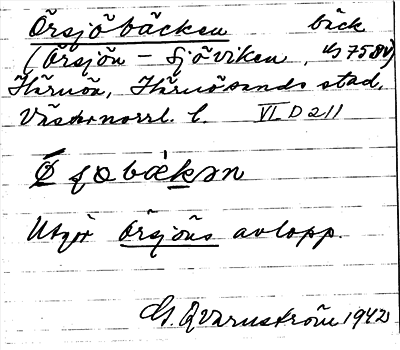 Örsjöbäcken bäck
(Örsjön - Sjöviken, 4G 758V)
Härnön, Härnösands stad,
Västernorrl. l. VI D 211
Utgör Örsjöns avlopp.
G. Qvarnström 1942